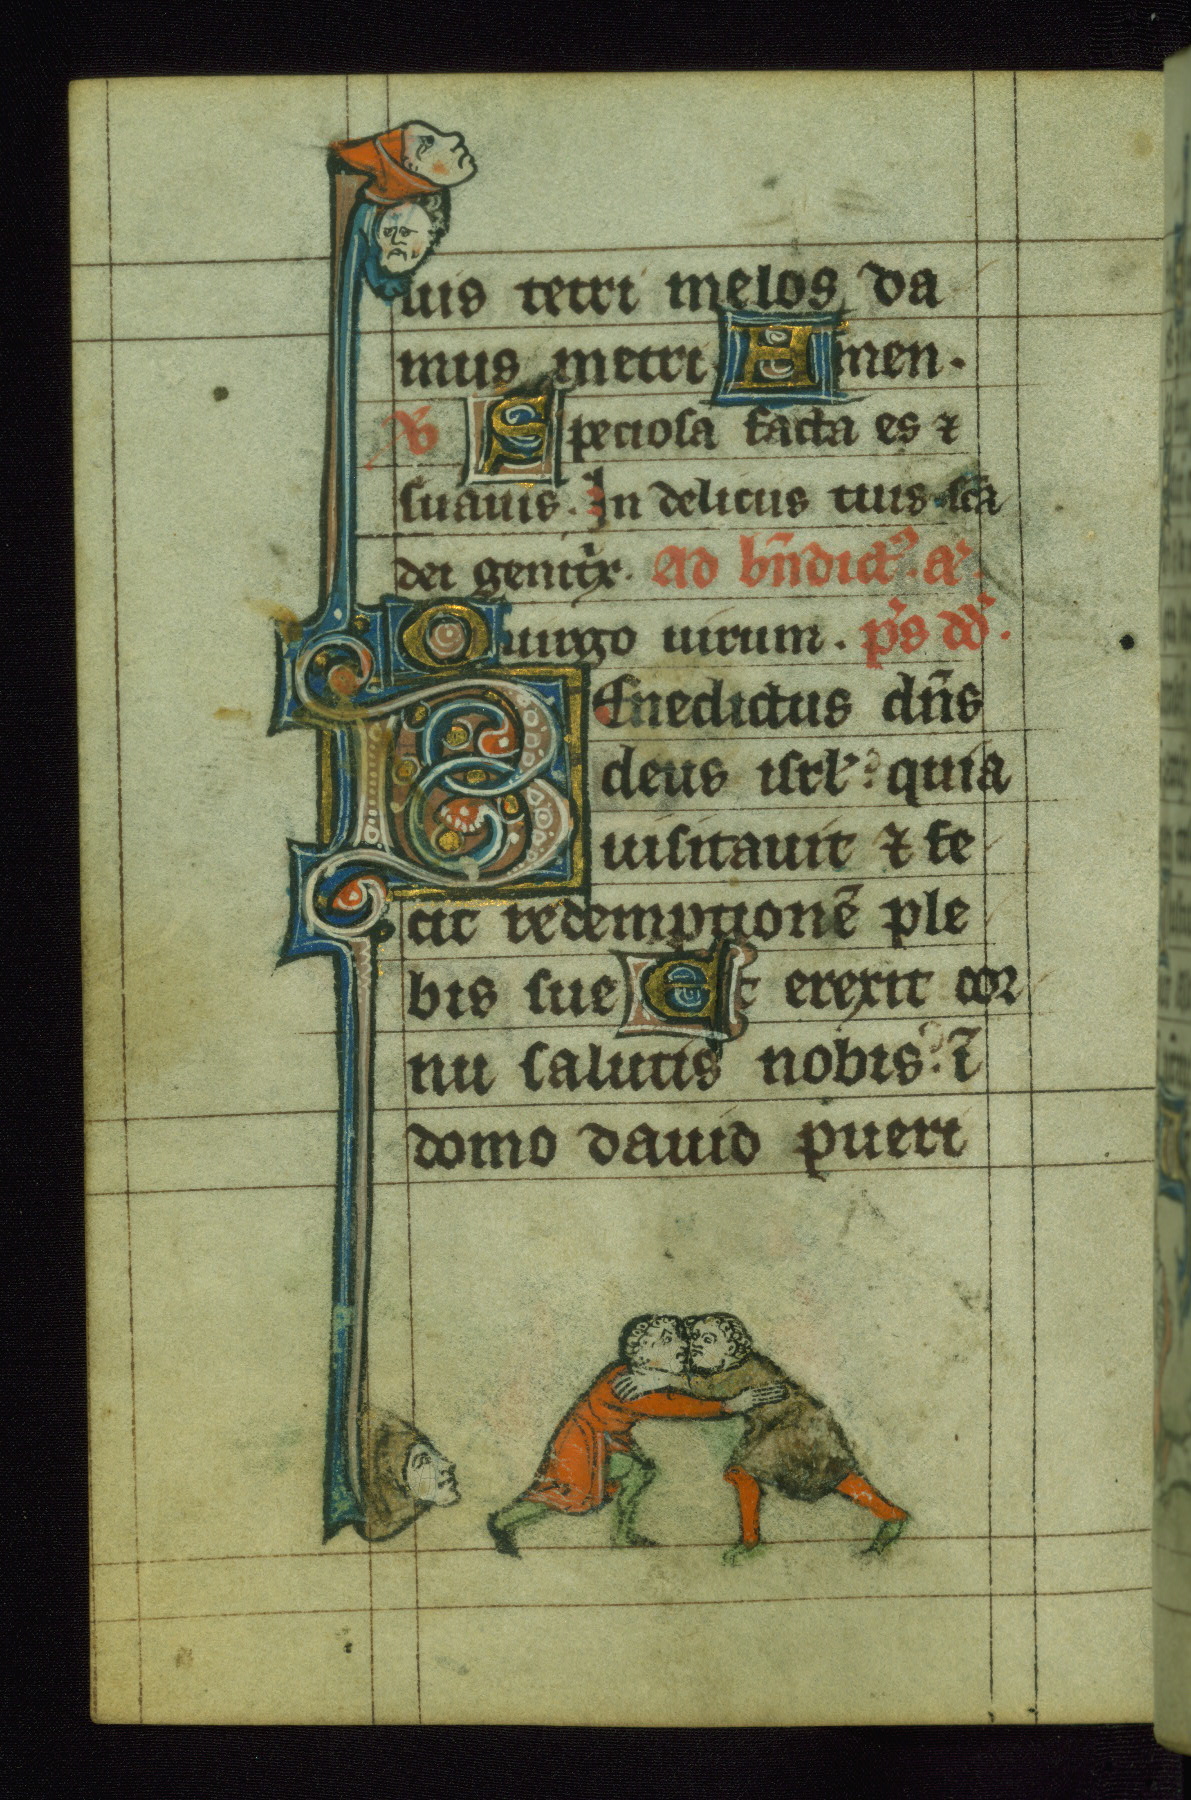 uis tetri melos da
mus metri Amen.
℣ Speciosa facta es ⁊
suauis. In deliciis tuis s̄cā
dei genit̓x. Ad bn̄dict᷒. a᷒.
O uirgo uirum. p̄s dd᷒.
BEnedictus dn̄s
deus isrl᷒: quia
uisitauit ⁊ fe
cit redemptionē ple
bis sue Et erexit cor
nu salutis nobis: ī
domo dauid pueri